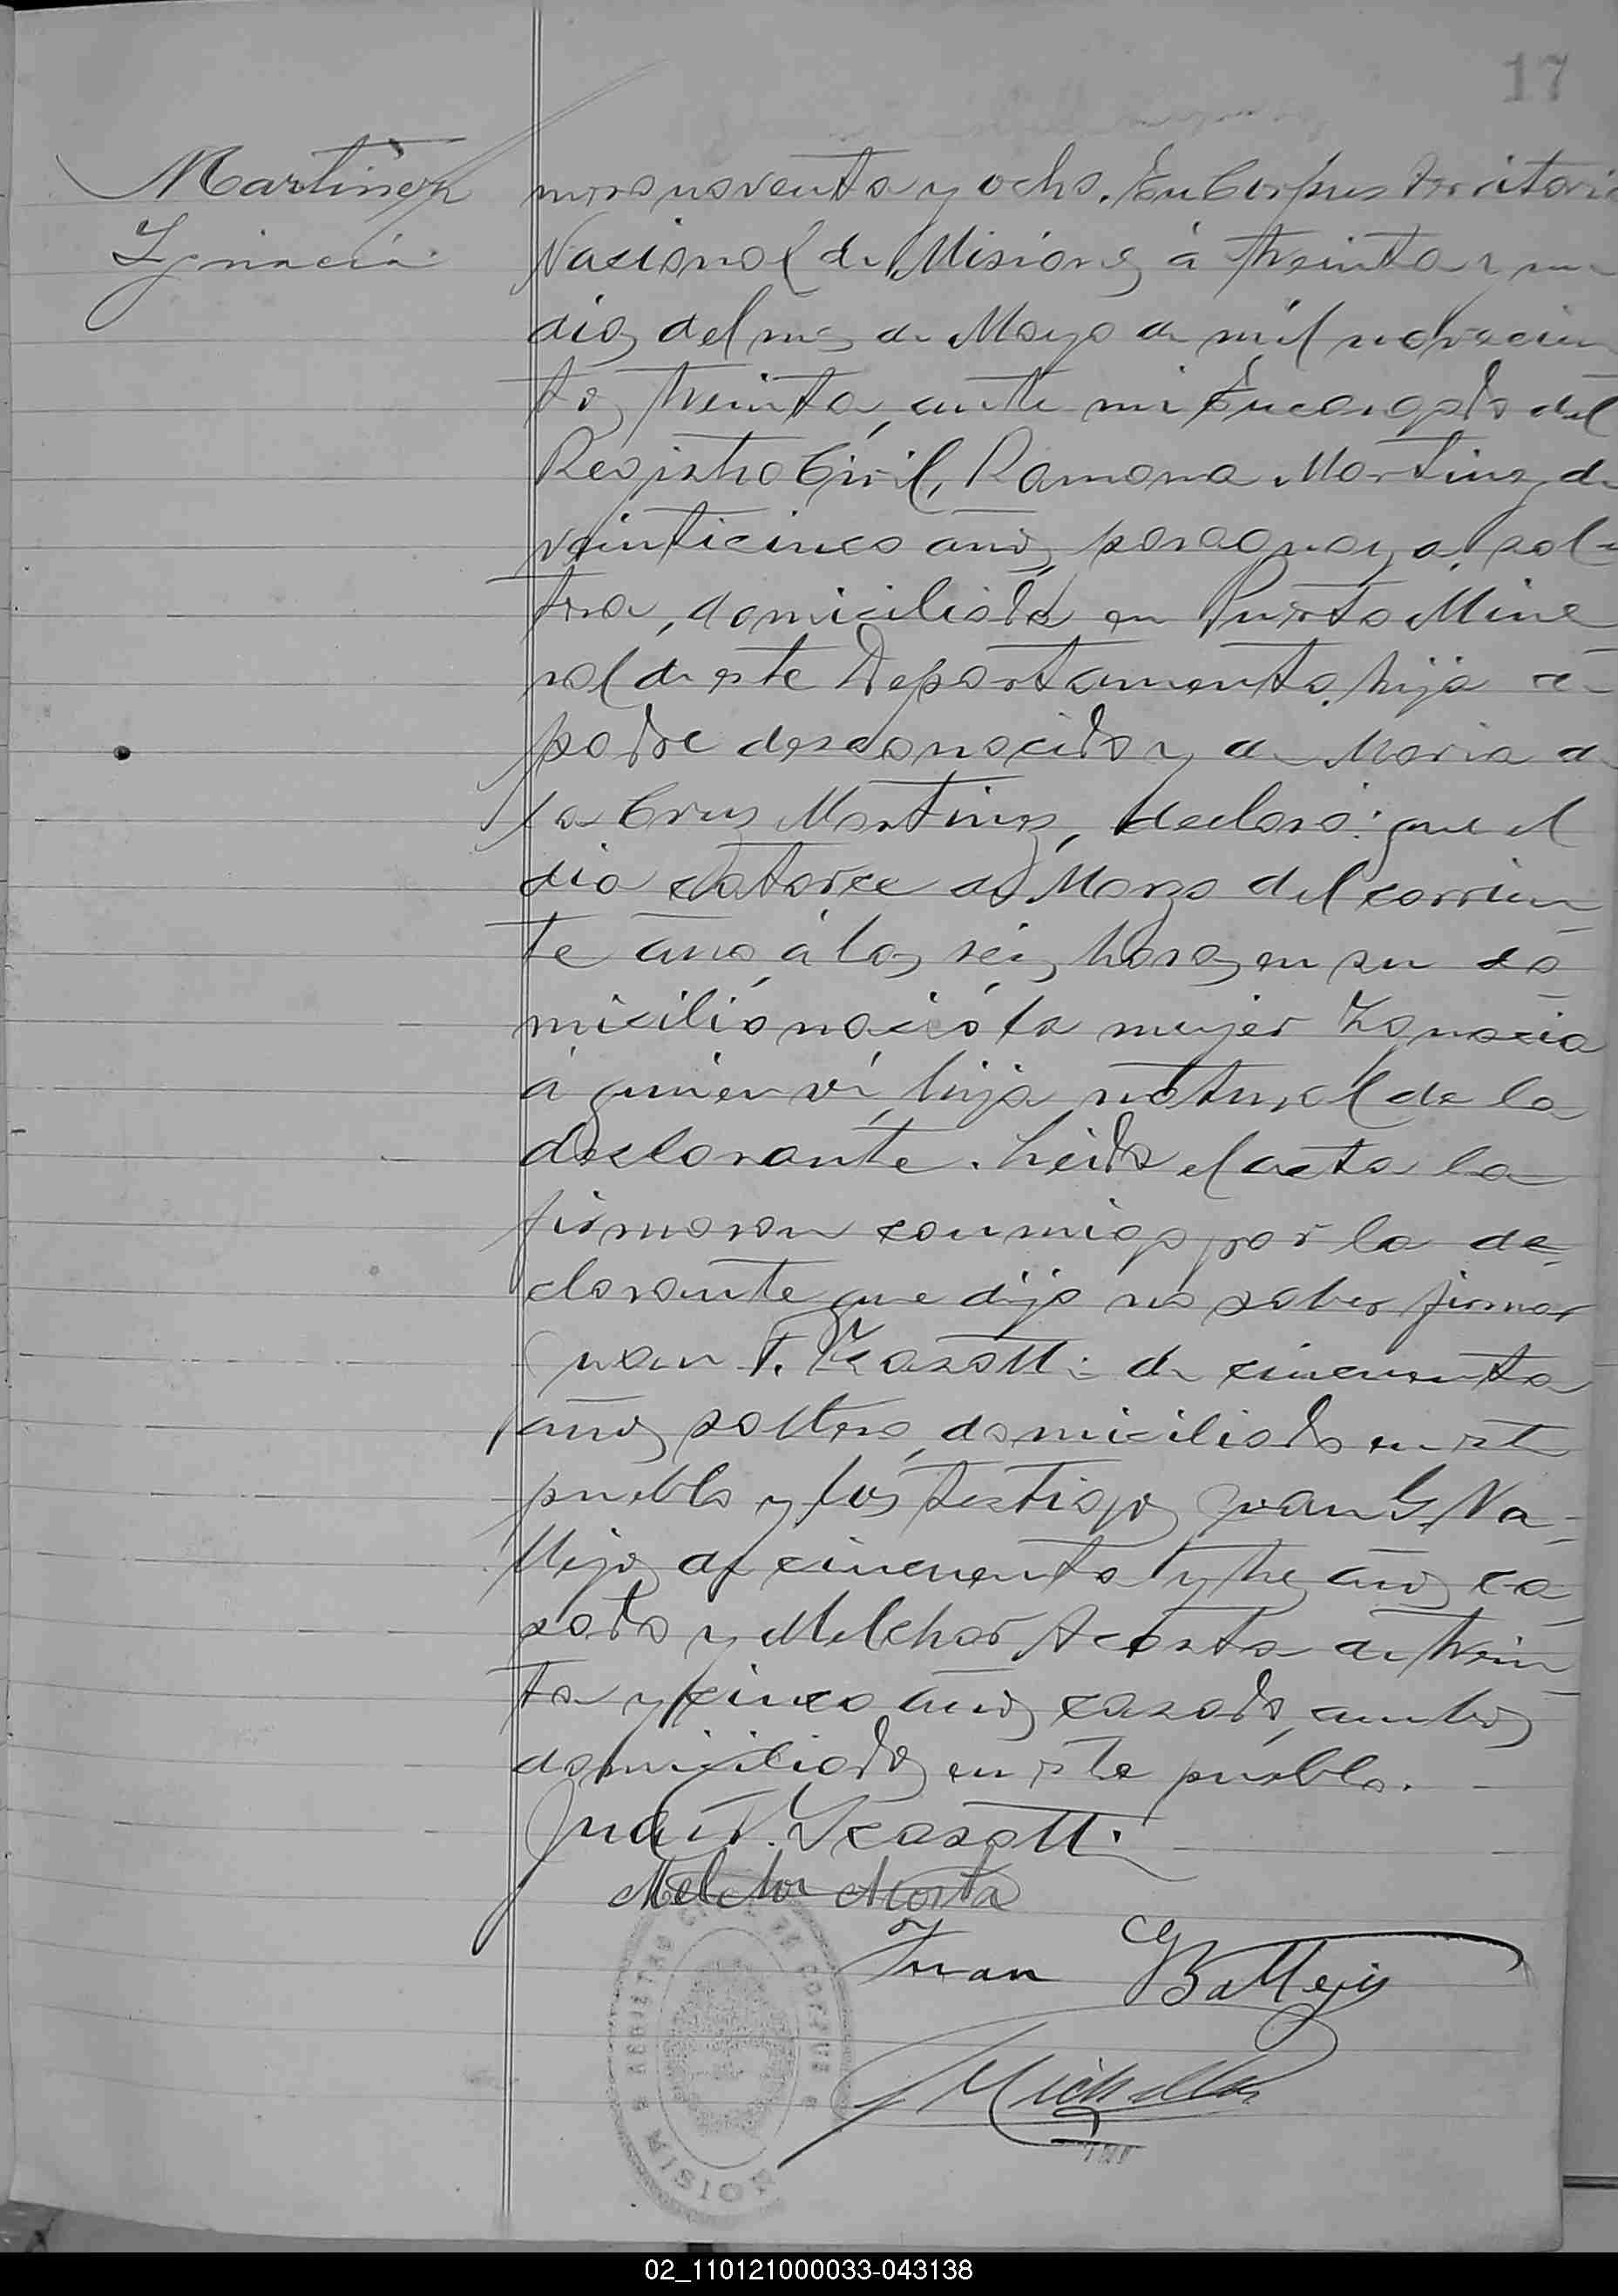 17
Martinez
Ygnacia
mero noventa y ocho. En Corpus Territorio
Nacional de Misiones á treinta y un
dias del mes de Mayo de mil novecien
tos treinta, ante mi Encargado del
Registro Civil, Ramona Martinez de
veinticinco años, paraguaya, sol-
tera, domiciliada en Puerto Mine
ral de este Departamento, hija de
padre desconocido y de Maria de
la Cruz Martinez, declaró: que el
dia catorce de Marzo del corrien
te año, á las seis horas, en su do
micilio nació la mujer Ygnacia
á quien vi, hija natural de la
declarante. Leida el acta la
firmaron conmigo por la de-
clarante que dijo no saber firmar
Juan T. de cincuenta
años, soltero, domiciliado en este
pueblo y los testigos Juan G. Va-
llejos de cincuenta y tres años, ca-
sado y Melchor Acosta de trein
ta y cinco años, casado, ambos
domiciliados en este pueblo.
Juan
Melchor Acosta
Juan G Ballejos
REGISTRO CIVIL DE CORPUS
MISIONES
02_110121000033-043138